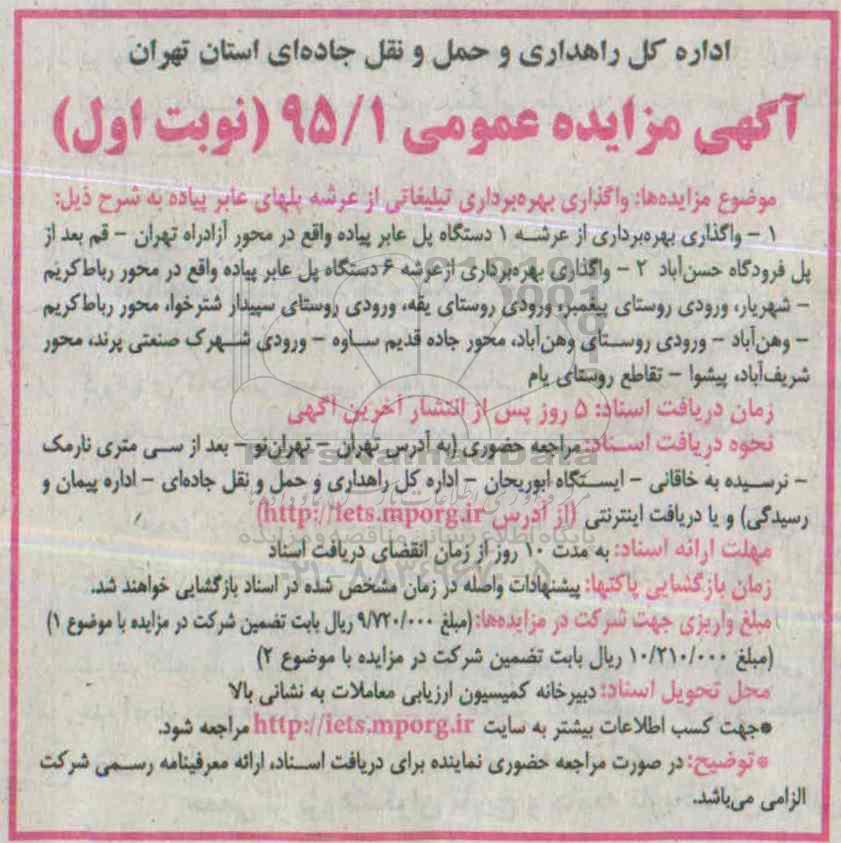 اداره کل راهداری و حمل و نقل جاده‌ای استان تهران
آگهی مزایده عمومی ۹۵/۱ (نوبت اول)
موضوع مزایده‌ها: واگذاری بهره‌برداری تبلیغاتی از عرشه پلهای عابر پیاده به شرح ذیل:
۱ – واگذاری بهره‌برداری از عرشه ۱ دستگاه پل عابر پیاده واقع در محور آزادراه تهران – قم بعد از
پل فرودگاه حسن‌آباد ۲ – واگذاری بهره‌برداری از عرشه ۶ دستگاه پل عابر پیاده واقع در محور رباط‌کریم
– شهریار، ورودی روستای پیغمبر، ورودی روستای یقه، ورودی روستای سپیدار شترخوا، محور رباط‌کریم
– وهن‌آباد – ورودی روستای وهن‌آباد، محور جاده قدیم ساوه – ورودی شهرک صنعتی پرند، محور
شریف‌آباد، پیشوا – تقاطع روستای یام
زمان دریافت اسناد: ۵ روز پس از انتشار آخرین آگهی
نحوه دریافت اسناد: مراجعه حضوری (به آدرس تهران – تهران‌نو – بعد از سی متری نارمک
– نرسیده به خاقانی – ایستگاه ابوریحان – اداره کل راهداری و حمل و نقل جاده‌ای – اداره پیمان و
رسیدگی) و یا دریافت اینترنتی (از آدرس http://iets.mporg.ir)
مهلت ارائه اسناد: به مدت ۱۰ روز از زمان انقضای دریافت اسناد
زمان بازگشایی پاکتها: پیشنهادات واصله در زمان مشخص شده در اسناد بازگشایی خواهند شد.
مبلغ واریزی جهت شرکت در مزایده‌ها: (مبلغ ۹/۷۲۰/۰۰۰ ریال بابت تضمین شرکت در مزایده با موضوع ۱)
(مبلغ ۱۰/۲۱۰/۰۰۰ ریال بابت تضمین شرکت در مزایده با موضوع ۲)
محل تحویل اسناد: دبیرخانه کمیسیون ارزیابی معاملات به نشانی بالا
*جهت کسب اطلاعات بیشتر به سایت http://iets.mporg.ir مراجعه شود.
*توضیح: در صورت مراجعه حضوری نماینده برای دریافت اسناد، ارائه معرفینامه رسمی شرکت
الزامی می‌باشد.
ParsNamadData
پایگاه اطلاع رسانی مناقصه و مزایده